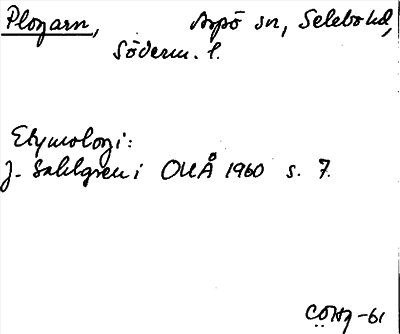 Plogarn, Aspö sn, Selebo hd,
Söderm. l.
Etymologi:
J. Sahlgren i OUÅ 1960 s. 7.
CÖHg -61